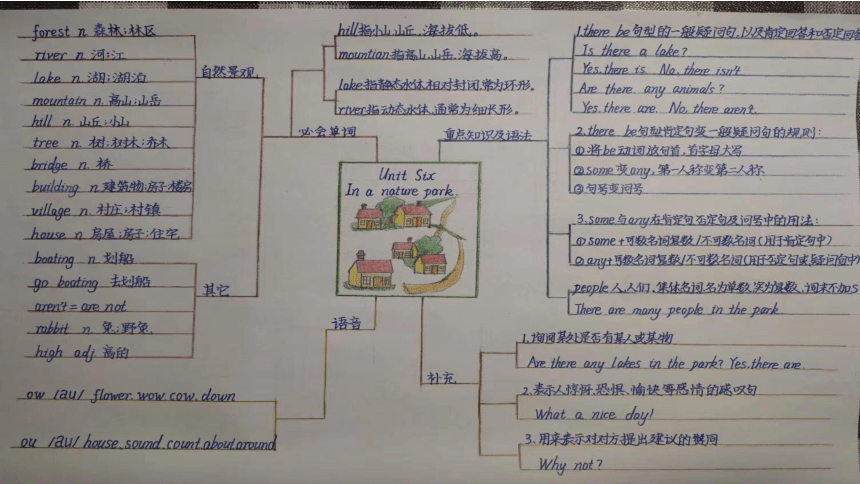 forest n. 森林;林区
river n. 河;江
lake n. 湖;湖泊
mountain n. 高山;山岳
hill n. 山丘;小山
tree n. 树;树木;乔木
bridge n. 桥
building n.建筑物;房子;楼房
village n. 村庄;村镇
house n. 房屋;房子;住宅
自然景观
boating n. 划船
go boating 去划船
aren't = are not
rabbit n. 兔;野兔
high adj 高的
其它
必会单词
hill指小山,山丘,海拔低。
mountian.指高山,山岳.海拔高。
lake指静态水体,相对封闭,常为环形。
river指动态水体,通常为细长形。
Unit Six
In a nature park.
重点知识及语法
1.there be句型的一般疑问句,以及肯定回答和否定回答
Is there a lake?
Yes.there is. No, there isn't
Are there. any animals?
Yes.there are. No, there aren't.
2.there be句型肯定句变一般疑问句的规则:
①将be动词放句首,首字母大写
②some变any,第一人称变第二人称
③句号变问号
3.some与any在肯定句否定句及问号中的用法:
①some+可数名词复数/不可数名词(用于肯定句中)
②any+可数名词复数/不可数名词(用于否定句或疑问句中)
people人,人们,集体名词,名为单数,实为复数,词末不加,s
There are many people in the park
语音
ow /au/ flower.wow.cow.down
ou /au/ house.sound.count.about.around
补充
1.询问某处是否有某人或某物
Are there any lakes in the park? Yes.there are.
2.表示人惊讶.恐惧、愉快等感情的感叹句
What a nice day!
3.用来表示对对方提出建议的赞同
Why not?